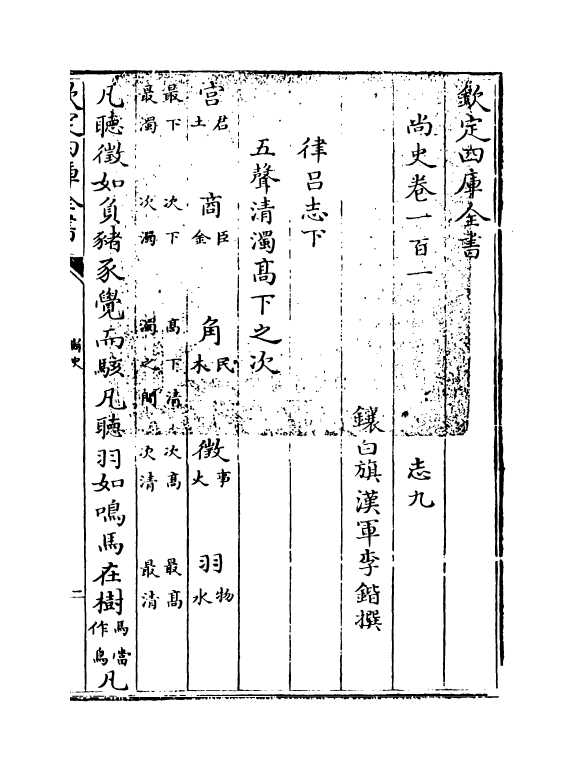 欽定四庫全書
尚史卷一百一　志九
鑲白旗漢軍李鍇撰
律呂志下
五聲清濁髙下之次
宮君土　商臣金　角民木　徵事火　羽物水
最下最濁　次下次濁　髙下清濁之間　次髙次清　最髙最清
凡聽徵如負豬豕覺而駭凡聽羽如鳴馬在樹馬當作鳥凡
欽定四庫全書
尚史
二